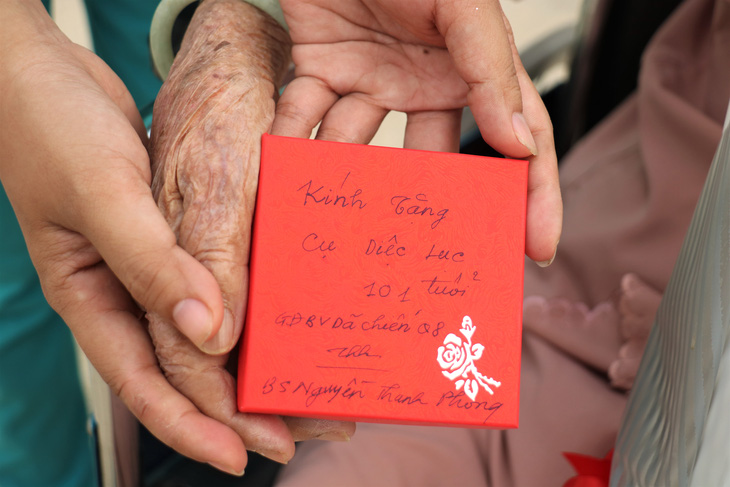 Kính Tặng
Cụ Diệc Luc
101 tuổi
GĐBV Dã chiến Q8
BS Nguyễn Thanh Phong